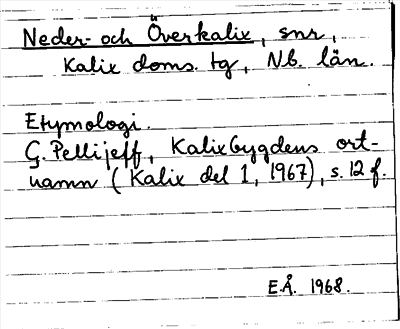 Neder- och Överkalix, snr,
Kalix doms. tg, Nb. län.
Etymologi.
G. Pellijeff, Kalixbygdens ort-
namn (Kalix del 1, 1967), s. 12 f.
E.Å. 1968.